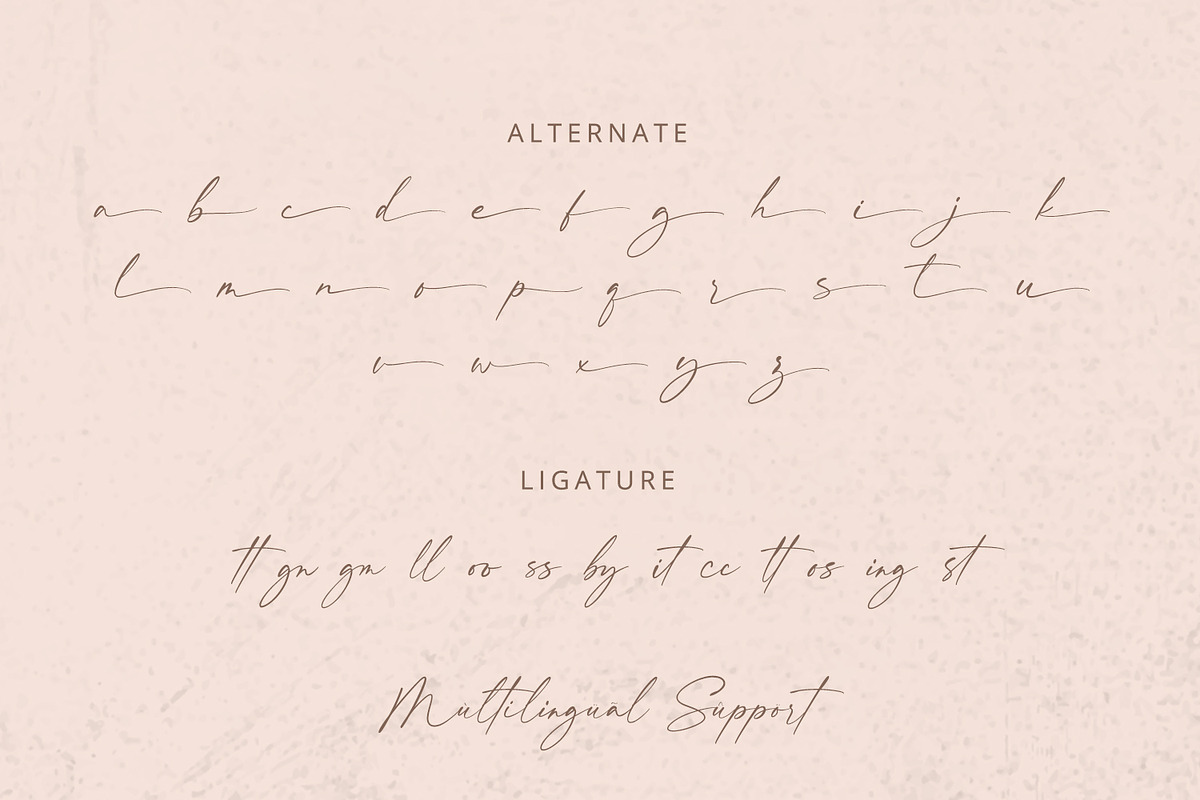 ALTERNATE
a b c d e f g h i j k
l m n o p q r s t u
v w x y z
LIGATURE
tt gn gm ll oo ss by it cc tt os ing st
Multilingual Support